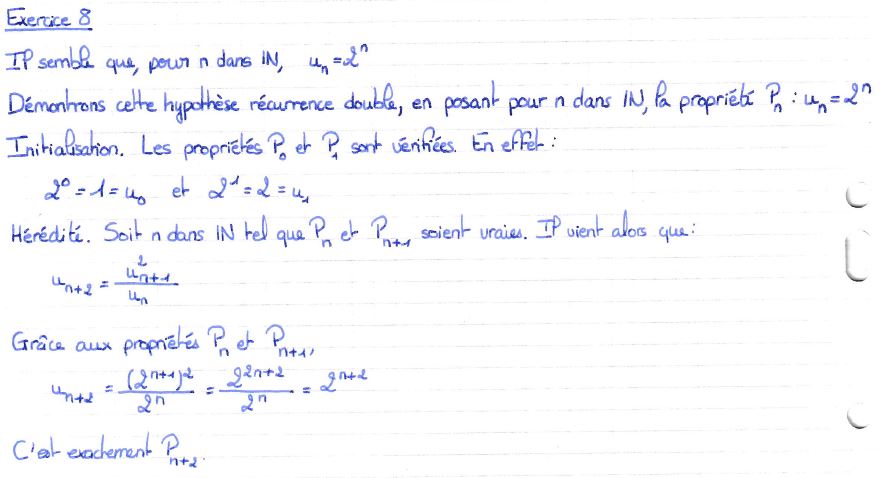 Exercice 8
Il semble que, pour n dans IN, uₙ = 2ⁿ
Démontrons cette hypothèse récurrence double, en posant pour n dans IN, la propriété Pₙ : uₙ = 2ⁿ
Initialisation. Les propriétés P₀ et P₁ sont vérifiées. En effet :
2⁰ = 1 = u₀ et 2¹ = 2 = u₁
Hérédité. Soit n dans IN tel que Pₙ et Pₙ₊₁ soient vraies. Il vient alors que :
uₙ₊₂ = uₙ₊₁² / uₙ
Grâce aux propriétés Pₙ et Pₙ₊₁,
uₙ₊₂ = (2ⁿ⁺¹)² / 2ⁿ = 2²ⁿ⁺² / 2ⁿ = 2ⁿ⁺²
C'est exactement Pₙ₊₂.